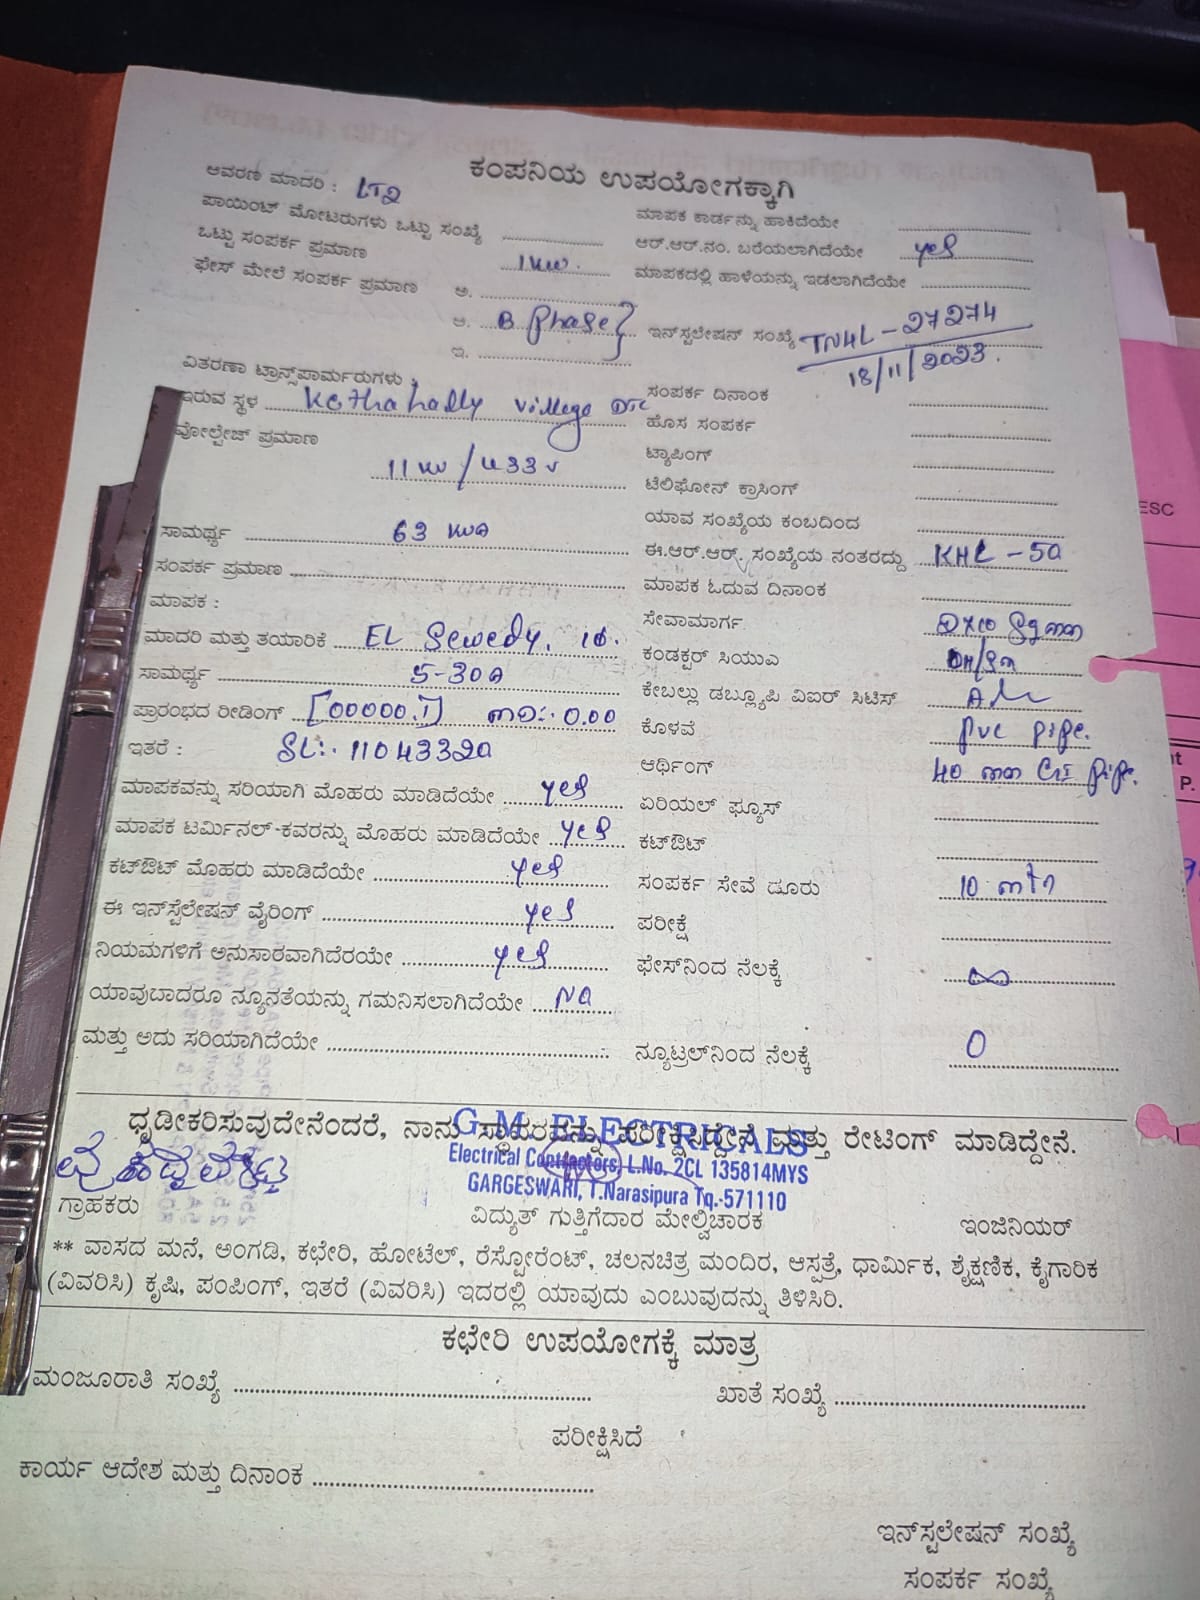 ಕಂಪನಿಯ ಉಪಯೋಗಕ್ಕಾಗಿ
ಆವರಣ ಮಾದರಿ : LT2
ಪಾಯಿಂಟ್ ಮೋಟರುಗಳು ಒಟ್ಟು ಸಂಖ್ಯೆ
ಒಟ್ಟು ಸಂಪರ್ಕ ಪ್ರಮಾಣ 1KW.
ಫೇಸ್ ಮೇಲೆ ಸಂಪರ್ಕ ಪ್ರಮಾಣ ಅ.
ಆ. B phase }
ಇ.
ವಿತರಣಾ ಟ್ರಾನ್ಸ್‌ಫಾರ್ಮರುಗಳು :
ಇರುವ ಸ್ಥಳ Kethahally village DTC
ವೋಲ್ಟೇಜ್ ಪ್ರಮಾಣ
11 KV / 433 V
ಸಾಮರ್ಥ್ಯ 63 KVA
ಸಂಪರ್ಕ ಪ್ರಮಾಣ
ಮಾಪಕ :
ಮಾದರಿ ಮತ್ತು ತಯಾರಿಕೆ EL Sewedy, 1ф.
ಸಾಮರ್ಥ್ಯ 5-30A
ಪ್ರಾರಂಭದ ರೀಡಿಂಗ್ [00000.1] MD:- 0.00
ಇತರೆ : SL:- 11043320
ಮಾಪಕವನ್ನು ಸರಿಯಾಗಿ ಮೊಹರು ಮಾಡಿದೆಯೇ yes
ಮಾಪಕ ಟರ್ಮಿನಲ್-ಕವರನ್ನು ಮೊಹರು ಮಾಡಿದೆಯೇ yes
ಕಟ್‌ಔಟ್ ಮೊಹರು ಮಾಡಿದೆಯೇ yes
ಈ ಇನ್‌ಸ್ಟಲೇಷನ್ ವೈರಿಂಗ್ yes
ನಿಯಮಗಳಿಗೆ ಅನುಸಾರವಾಗಿದೆರಯೇ yes
ಯಾವುಬಾದರೂ ನ್ಯೂನತೆಯನ್ನು ಗಮನಿಸಲಾಗಿದೆಯೇ NA
ಮತ್ತು ಅದು ಸರಿಯಾಗಿದೆಯೇ
ಮಾಪಕ ಕಾರ್ಡನ್ನು ಹಾಕಿದೆಯೇ
ಆರ್.ಆರ್.ನಂ. ಬರೆಯಲಾಗಿದೆಯೇ yes
ಮಾಪಕದಲ್ಲಿ ಹಾಳೆಯನ್ನು ಇಡಲಾಗಿದೆಯೇ
ಇನ್‌ಸ್ಟಲೇಷನ್ ಸಂಖ್ಯೆ TN4L - 27274
18/11/2023.
ಸಂಪರ್ಕ ದಿನಾಂಕ
ಹೊಸ ಸಂಪರ್ಕ
ಟ್ಯಾಪಿಂಗ್
ಟೆಲಿಫೋನ್ ಕ್ರಾಸಿಂಗ್
ಯಾವ ಸಂಖ್ಯೆಯ ಕಂಬದಿಂದ
ಈ.ಆರ್.ಆರ್. ಸಂಖ್ಯೆಯ ನಂತರದ್ದು KHL - 50
ಮಾಪಕ ಓದುವ ದಿನಾಂಕ
ಸೇವಾಮಾರ್ಗ
ಕಂಡಕ್ಟರ್ ಸಿಯುಎ
ಕೇಬಲ್ಲು ಡಬ್ಲ್ಯೂಪಿ ವಿಐರ್ ಸಿಟಿಸ್
ಕೊಳವೆ PVC pipe.
ಆರ್ಥಿಂಗ್ 40 mm GI pipe.
ಏರಿಯಲ್ ಫ್ಯೂಸ್
ಕಟ್‌ಔಟ್
ಸಂಪರ್ಕ ಸೇವೆ ದೂರು 10 mtr
ಪರೀಕ್ಷೆ
ಫೇಸ್‌ನಿಂದ ನೆಲಕ್ಕೆ ∞
ನ್ಯೂಟ್ರಲ್‌ನಿಂದ ನೆಲಕ್ಕೆ 0
ಧೃಡೀಕರಿಸುವುದೇನೆಂದರೆ, ನಾನು ಸ್ಥಾವರವನ್ನು ಪರೀಕ್ಷಿಸಿದ್ದೇನೆ ಮತ್ತು ರೇಟಿಂಗ್ ಮಾಡಿದ್ದೇನೆ.
G. M. ELECTRICALS
Electrical Contractors, L.No. 2CL 135814MYS
GARGESWARI, T.Narasipura Tq.-571110
ಗ್ರಾಹಕರು ವಿದ್ಯುತ್ ಗುತ್ತಿಗೆದಾರ ಮೇಲ್ವಿಚಾರಕ ಇಂಜಿನಿಯರ್
** ವಾಸದ ಮನೆ, ಅಂಗಡಿ, ಕಛೇರಿ, ಹೋಟೆಲ್, ರೆಸ್ಟೋರೆಂಟ್, ಚಲನಚಿತ್ರ ಮಂದಿರ, ಆಸ್ಪತ್ರೆ, ಧಾರ್ಮಿಕ, ಶೈಕ್ಷಣಿಕ, ಕೈಗಾರಿಕ
(ವಿವರಿಸಿ) ಕೃಷಿ, ಪಂಪಿಂಗ್, ಇತರೆ (ವಿವರಿಸಿ) ಇದರಲ್ಲಿ ಯಾವುದು ಎಂಬುವುದನ್ನು ತಿಳಿಸಿರಿ.
ಕಛೇರಿ ಉಪಯೋಗಕ್ಕೆ ಮಾತ್ರ
ಮಂಜೂರಾತಿ ಸಂಖ್ಯೆ ಖಾತೆ ಸಂಖ್ಯೆ
ಪರೀಕ್ಷಿಸಿದೆ
ಕಾರ್ಯ ಆದೇಶ ಮತ್ತು ದಿನಾಂಕ
ಇನ್‌ಸ್ಟಲೇಷನ್ ಸಂಖ್ಯೆ
ಸಂಪರ್ಕ ಸಂಖ್ಯೆ
ESC
P.